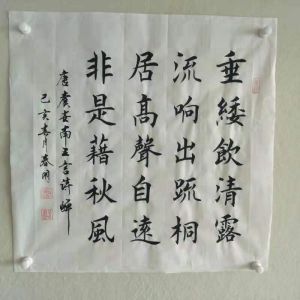 垂緌飲清露
流响出疏桐
居高聲自遠
非是藉秋風
唐虞世南五言诗蝉
己亥春月春周